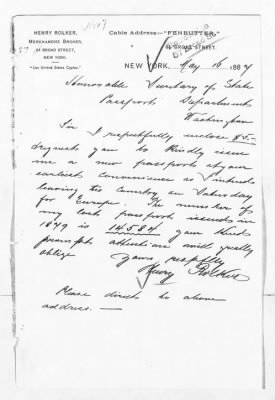 HENRY ROLKER,
MERCHANDISE BROKER,
61 BROAD STREET,
NEW YORK.
"Use United States Cypher."
Cable Address:—"FENBUTTER."
61 BROAD STREET.
NEW YORK, May 16 1887
Honorable Secretary of State
Passport Department
Washington
Sir I respectfully enclose $5.–
& request you to kindly issue
me a new passport at your
earliest convenience as I intend
leaving the Country on Saturday
for Europe. The number of
my last passport issued in
1879 is 14584 your kind
prompt attention will greatly
oblige
Yours respectfly
Henry Rolker
Please direct to above
address.—